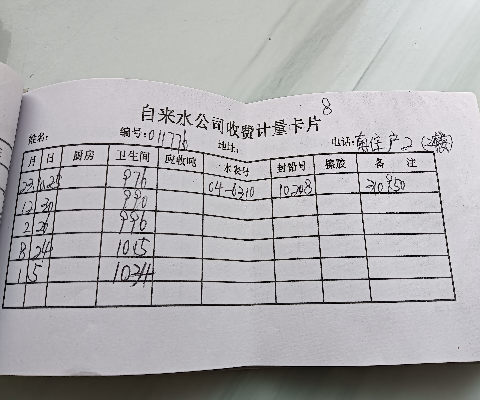 8
自来水公司收费计量卡片
姓名: 编号:011776 地址: 电话:
月 日 厨房 卫生间 应收吨 水表号 封铅号 橡胶 备 注
23.10.25 976 04-6310 10208
12 30 990
2 26 996
8 24 1015
1 5 1034